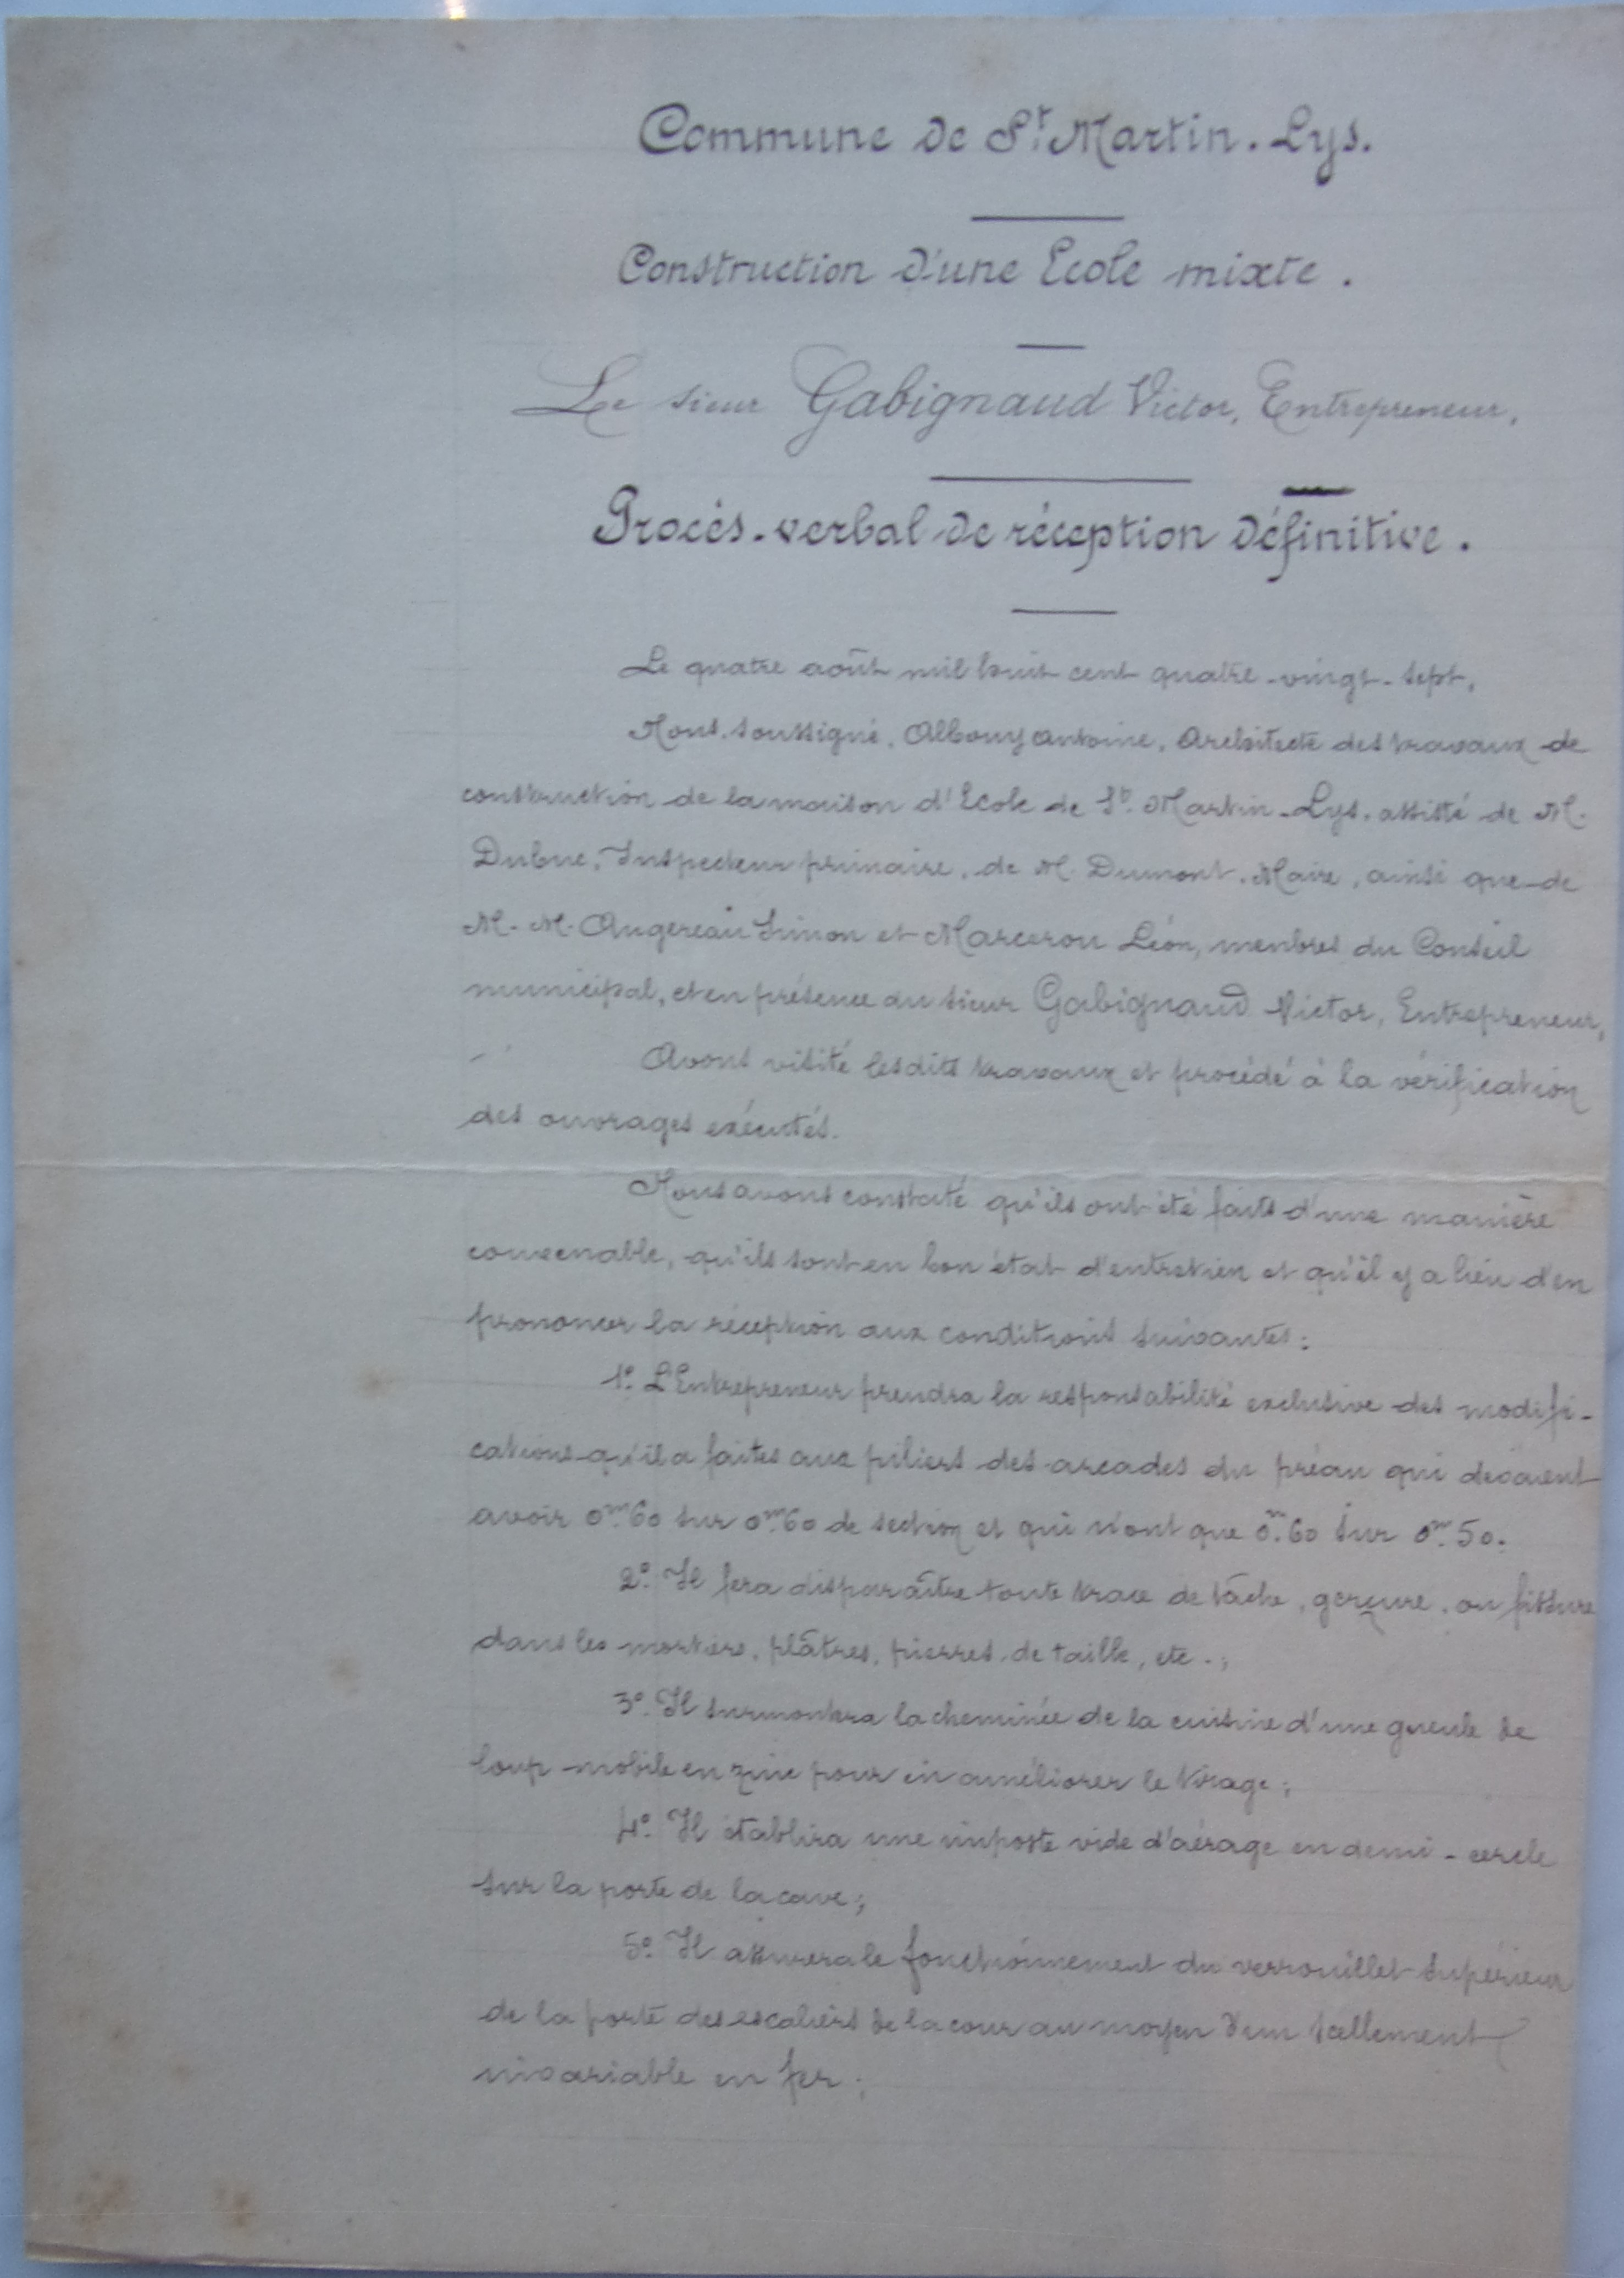 Commune de St. Martin. Lys.
Construction d'une Ecole mixte.
Le sieur Gabignaud Victor, Entrepreneur.
Procès-verbal de réception définitive.
Le quatre août mil huit cent quatre-vingt-sept,
Nous soussigné, Albouy antoine, Architecte des travaux de
construction de la maison d'Ecole de St. Martin-Lys, assisté de M.
Inspecteur primaire, de M. Dumont, Maire, ainsi que de
M. M. Augereau Simon et Marcerou Léon, membres du Conseil
municipal, et en présence du sieur Gabignaud Victor, Entrepreneur,
Avons visité lesdits travaux et procédé à la vérification
des ouvrages exécutés.
Nous avons constaté qu'ils ont été faits d'une manière
convenable, qu'ils sont en bon état d'entretien et qu'il y a lieu d'en
prononcer la réception aux conditions suivantes:
1º. L'Entrepreneur prendra la responsabilité exclusive des modifi-
cations qu'il a faites aux piliers des arcades du préau qui devaient
avoir 0m.60 sur 0m.60 de section et qui n'ont que 0m.60 sur 0m.50.
2º. Il fera disparaître toute trace de tâche, gerçure, ou fissure
dans les mortiers, plâtres, pierres de taille, etc.;
3º. Il surmontera la cheminée de la cuisine d'une gueule de
loup mobile en zinc pour en améliorer le tirage;
4º. Il établira une imposte vide d'aérage en demi-cercle
sur la porte de la cave;
5º. Il assurera le fonctionnement du verrouillet supérieur
de la porte des escaliers de la cour au moyen d'un scellement
invariable en fer;